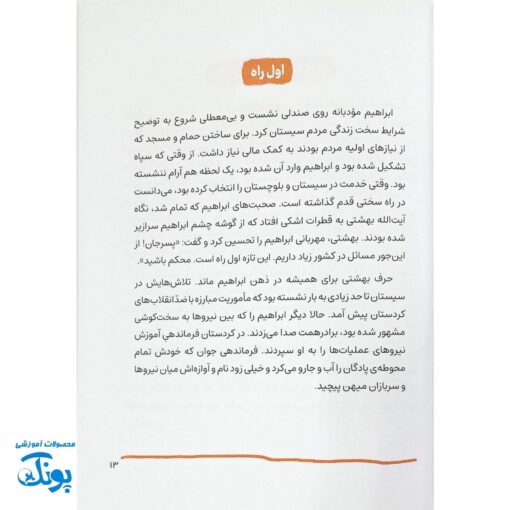 اول راه
ابراهیم مؤدبانه روی صندلی نشست و بی‌معطلی شروع به توضیح
شرایط سخت زندگی مردم سیستان کرد. برای ساختن حمام و مسجد که
از نیازهای اولیه مردم بودند به کمک مالی نیاز داشت. از وقتی که سپاه
تشکیل شده بود و ابراهیم وارد آن شده بود، یک لحظه هم آرام ننشسته
بود. وقتی خدمت در سیستان و بلوچستان را انتخاب کرده بود، می‌دانست
در راه سختی قدم گذاشته است. صحبت‌های ابراهیم که تمام شد، نگاه
آیت‌الله بهشتی به قطرات اشکی افتاد که از گوشه چشم ابراهیم سرازیر
شده بودند. بهشتی، مهربانی ابراهیم را تحسین کرد و گفت: «پسرجان! از
این‌جور مسائل در کشور زیاد داریم. این تازه اول راه است. محکم باشید».
حرف بهشتی برای همیشه در ذهن ابراهیم ماند. تلاش‌هایش در
سیستان تا حد زیادی به بار نشسته بود که مأموریت مبارزه با ضدّانقلاب‌های
کردستان پیش آمد. حالا دیگر ابراهیم را که بین نیروها به سخت‌کوشی
مشهور شده بود، برادر همت صدا می‌زدند. در کردستان فرماندهیِ آموزش
نیروهای عملیات‌ها را به او سپردند. فرماندهی جوان که خودش تمام
محوطه‌ی پادگان را آب و جارو می‌کرد و خیلی زود نام و آوازه‌اش میان نیروها
و سربازان میهن پیچید.
۱۳
محصولات آموزشی
پونک